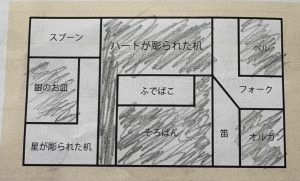 スプーン
ハートが彫られた机
ベル
銀のお皿
ふでばこ
フォーク
そろばん
笛
オルガン
星が彫られた机